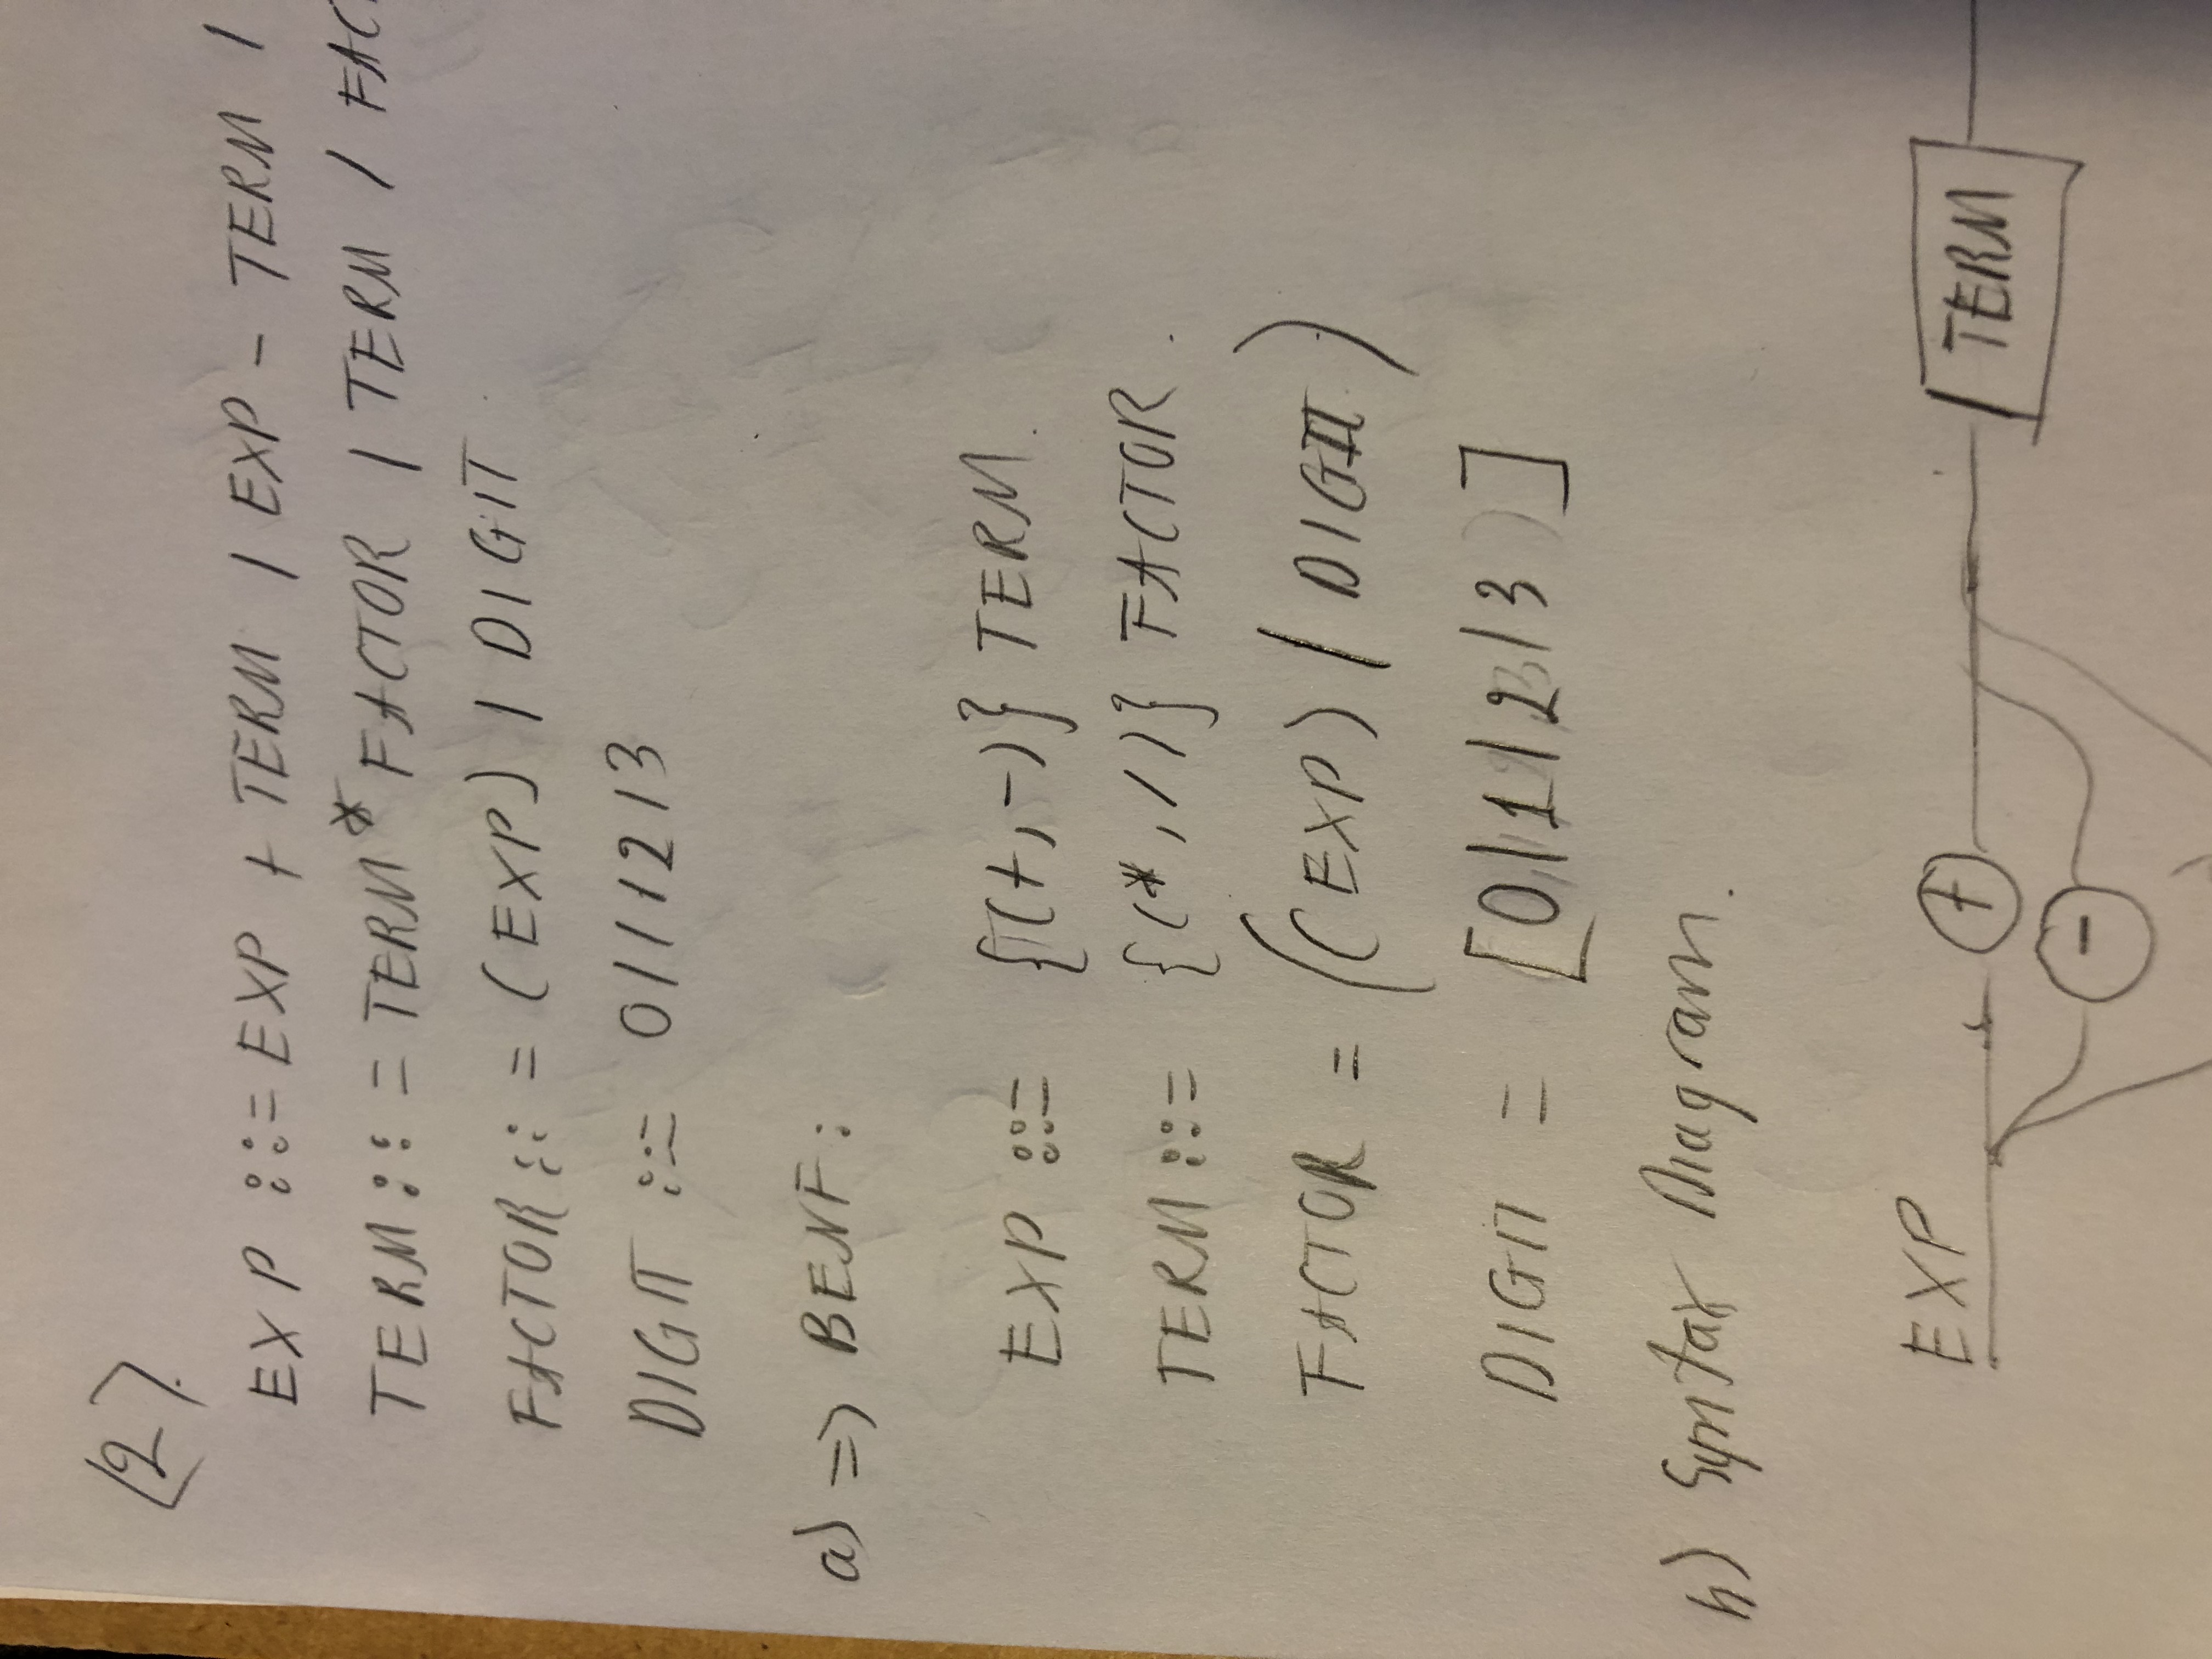 (2).
EXP ::= EXP + TERM | EXP - TERM |
TERM ::= TERM * FACTOR | TERM / FAC
FACTOR ::= (EXP) | DIGIT
DIGIT ::= 0 | 1 | 2 | 3
a) => BENF:
EXP ::= {(+,-)} TERM.
TERM ::= {(*,/)} FACTOR.
FACTOR = ((EXP) | DIGIT)
DIGIT = [0|1|2|3]
b) Syntax Diagram.
EXP + TERM
-